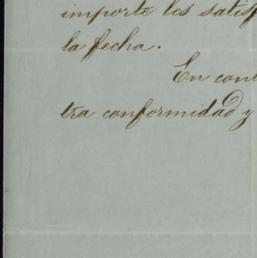 importe les satisf
la fecha.
En cont
tra conformidad y